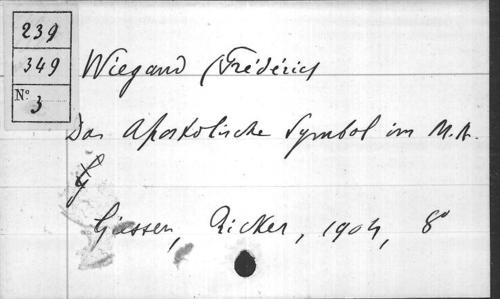 239
349
N° 3
Wiegand (Frédérich
Das Apostolische Symbol im M.A.
Giessen, Ricker, 1904, 8°